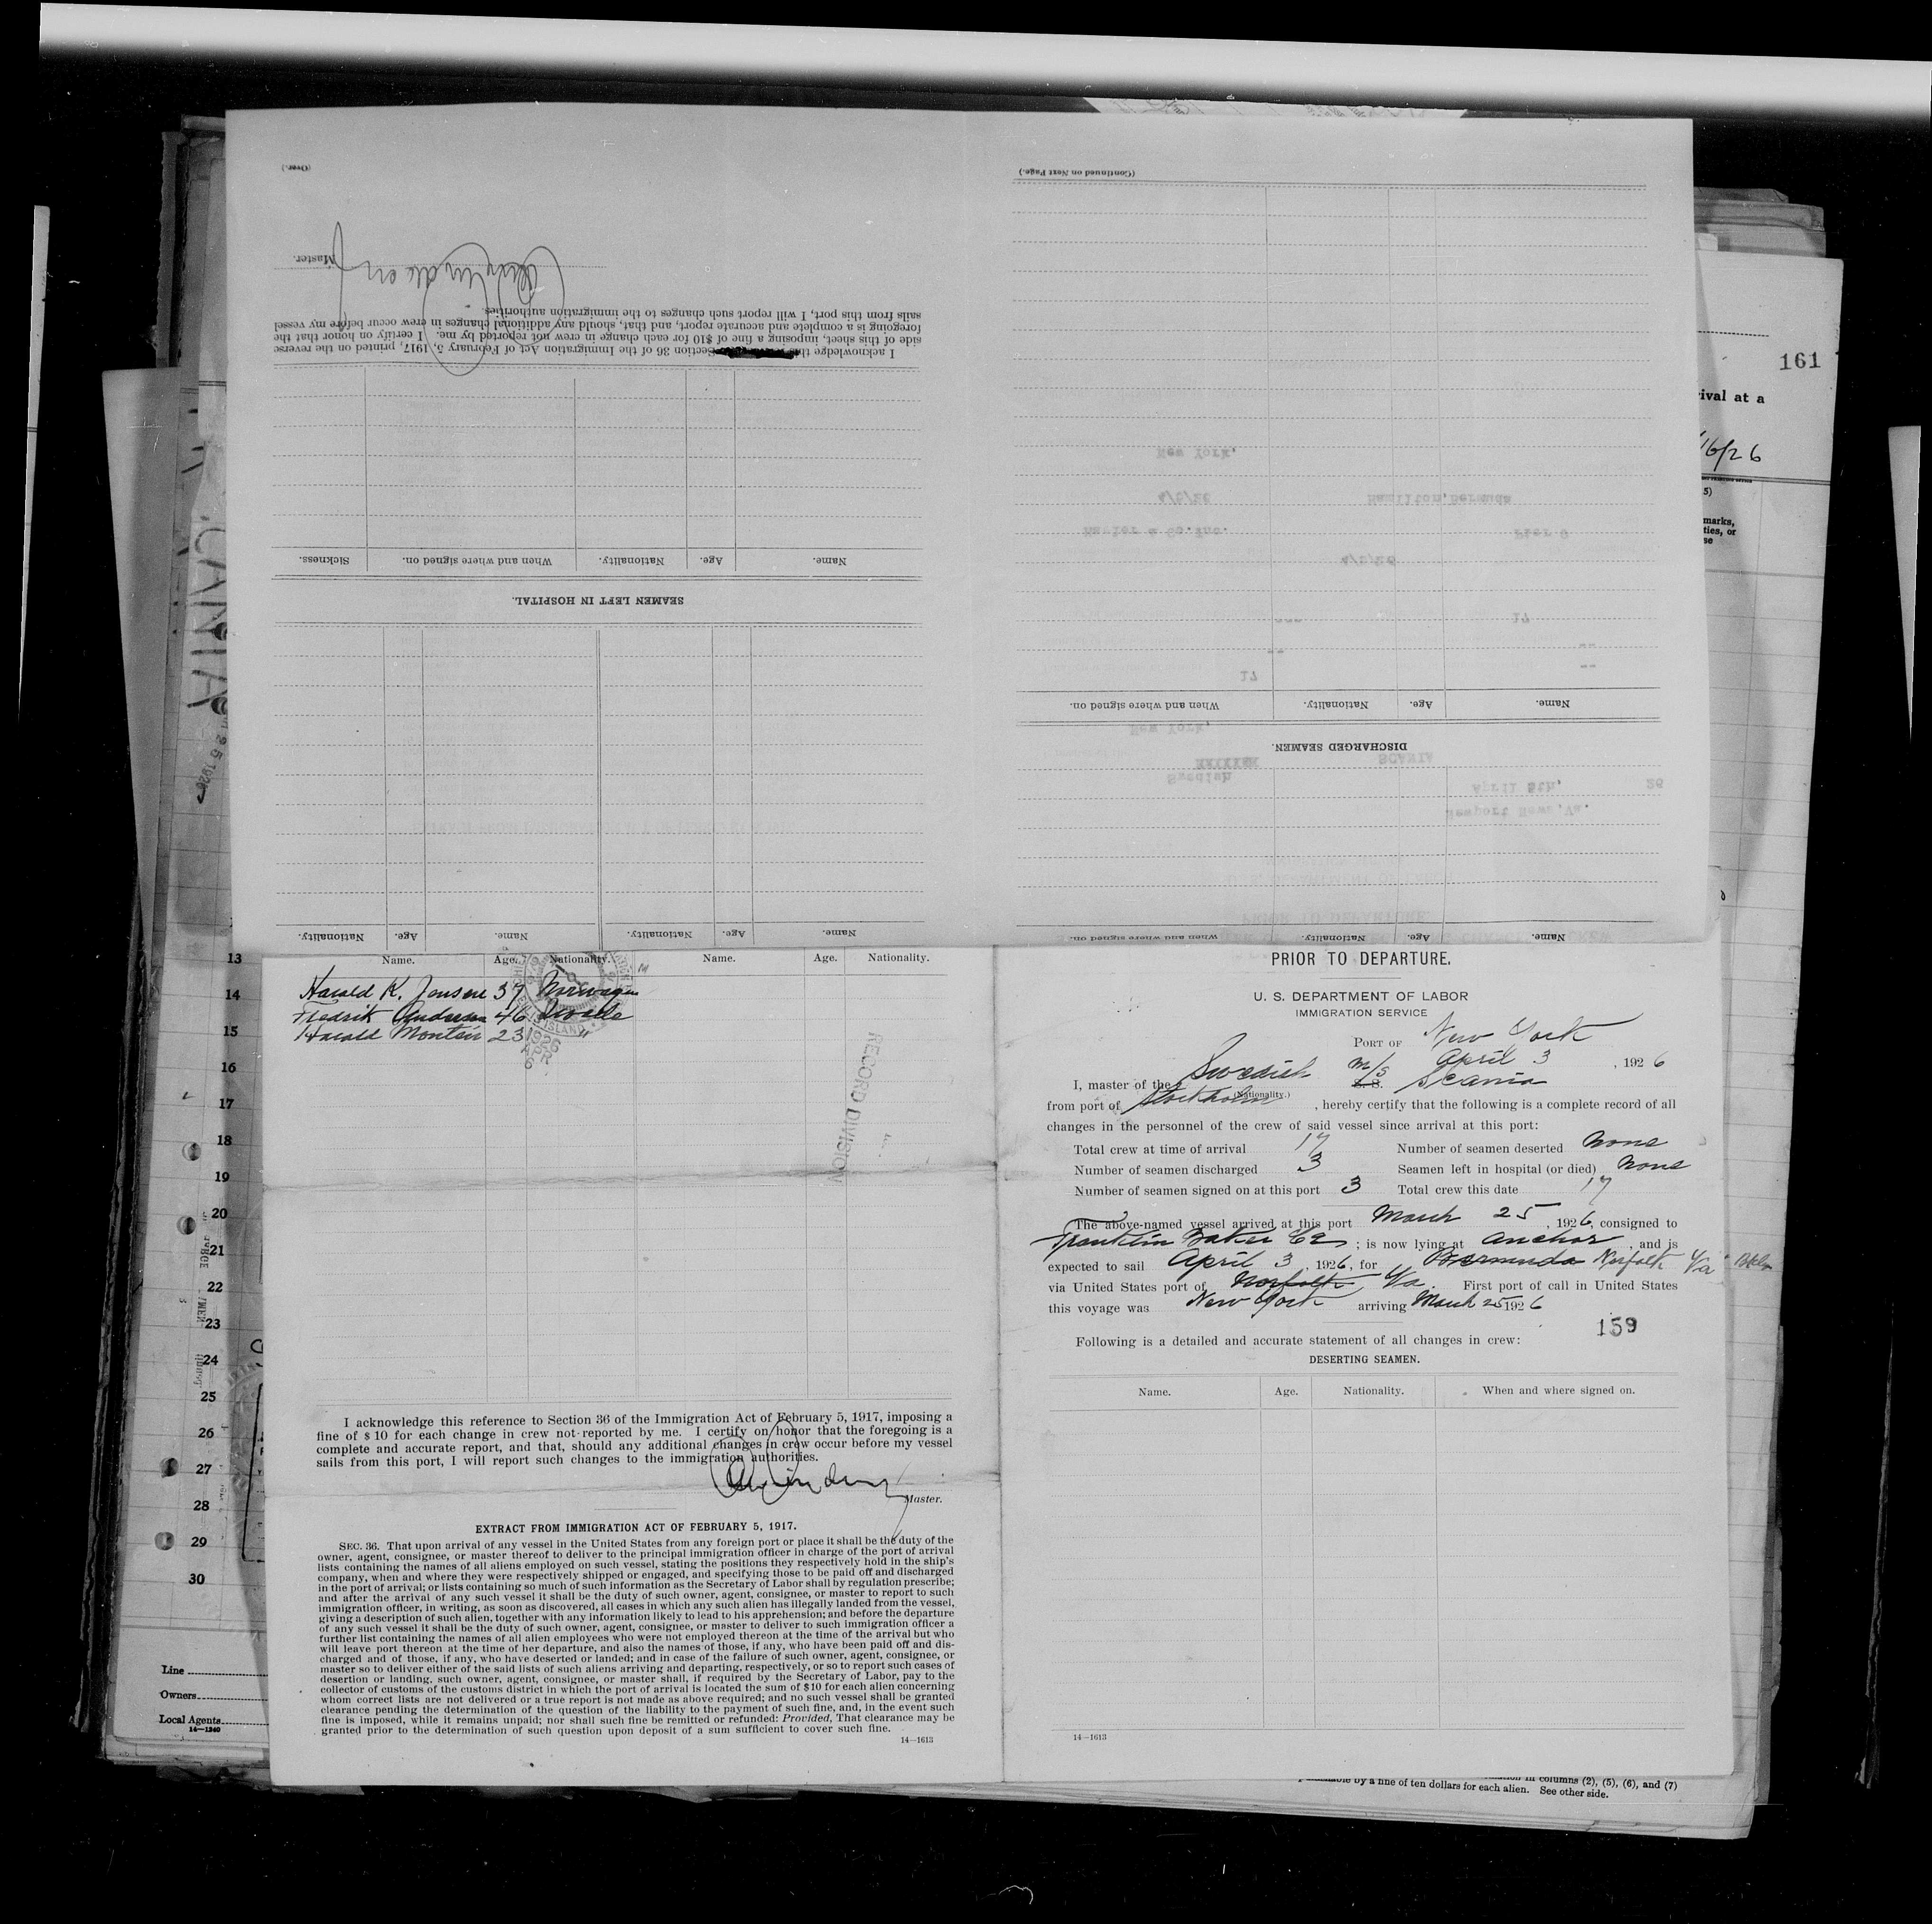 161
rival at a
16/26
5)
marks,
ties, or
se
(Over.)
Master.
I acknowledge this Section 36 of the Immigration Act of February 5, 1917, printed on the reverse
side of this sheet, imposing a fine of $10 for each change in crew not reported by me. I certify on honor that the
foregoing is a complete and accurate report, and that, should any additional changes in crew occur before my vessel
sails from this port, I will report such changes to the immigration authorities.
Name. Age. Nationality. When and where signed on. Sickness.
SEAMEN LEFT IN HOSPITAL.
Name. Age. Nationality. Name. Age. Nationality.
(Continued on Next Page.)
New York,
4/6/26 Hamilton, Bermuda
Pier 9
4/5/26
17
---
--
--
17
Name. Age. Nationality. When and where signed on.
DISCHARGED SEAMEN.
New York,
SCANIA
Swedish
April 5th, 26
Newport News, Va.
Name. Age. Nationality. When and where signed on.
Name. Age. Nationality. Name. Age. Nationality.
Harald K. Jensen 37
Fredrik Anderson 46
Harald Montin 23 "
RECORD DIVISION
I acknowledge this reference to Section 36 of the Immigration Act of February 5, 1917, imposing a
fine of $10 for each change in crew not reported by me. I certify on honor that the foregoing is a
complete and accurate report, and that, should any additional changes in crew occur before my vessel
sails from this port, I will report such changes to the immigration authorities.
Master.
EXTRACT FROM IMMIGRATION ACT OF FEBRUARY 5, 1917.
SEC. 36. That upon arrival of any vessel in the United States from any foreign port or place it shall be the duty of the
owner, agent, consignee, or master thereof to deliver to the principal immigration officer in charge of the port of arrival
lists containing the names of all aliens employed on such vessel, stating the positions they respectively hold in the ship's
company, when and where they were respectively shipped or engaged, and specifying those to be paid off and discharged
in the port of arrival; or lists containing so much of such information as the Secretary of Labor shall by regulation prescribe;
and after the arrival of any such vessel it shall be the duty of such owner, agent, consignee, or master to report to such
immigration officer, in writing, as soon as discovered, all cases in which any such alien has illegally landed from the vessel,
giving a description of such alien, together with any information likely to lead to his apprehension; and before the departure
of any such vessel it shall be the duty of such owner, agent, consignee, or master to deliver to such immigration officer a
further list containing the names of all alien employees who were not employed thereon at the time of the arrival but who
will leave port thereon at the time of her departure, and also the names of those, if any, who have been paid off and dis-
charged and of those, if any, who have deserted or landed; and in case of the failure of such owner, agent, consignee, or
master so to deliver either of the said lists of such aliens arriving and departing, respectively, or so to report such cases of
desertion or landing, such owner, agent, consignee, or master shall, if required by the Secretary of Labor, pay to the
collector of customs of the customs district in which the port of arrival is located the sum of $10 for each alien concerning
whom correct lists are not delivered or a true report is not made as above required; and no such vessel shall be granted
clearance pending the determination of the question of the liability to the payment of such fine, and, in the event such
fine is imposed, while it remains unpaid; nor shall such fine be remitted or refunded: Provided, That clearance may be
granted prior to the determination of such question upon deposit of a sum sufficient to cover such fine.
14—1613
PRIOR TO DEPARTURE.
U. S. DEPARTMENT OF LABOR
IMMIGRATION SERVICE
PORT OF New York
April 3, 1926
I, master of the Swedish M/S S. S. Scania
(Nationality.)
from port of Stockholm, hereby certify that the following is a complete record of all
changes in the personnel of the crew of said vessel since arrival at this port:
Total crew at time of arrival 17 Number of seamen deserted None
Number of seamen discharged 3 Seamen left in hospital (or died) None
Number of seamen signed on at this port 3 Total crew this date 17
The above-named vessel arrived at this port March 25, 1926, consigned to
Franklin Baker Co; is now lying at anchor, and is
expected to sail April 3, 1926, for Bermuda Norfolk Va
via United States port of Norfolk Va. First port of call in United States
this voyage was New York arriving March 25 1926
159
Following is a detailed and accurate statement of all changes in crew:
DESERTING SEAMEN.
Name. Age. Nationality. When and where signed on.
14—1613
13
14
15
16
17
18
19
20
21
22
23
24
25
26
27
28
29
30
Line
Owners
Local Agents
14—1240
in columns (2), (5), (6), and (7)
by a fine of ten dollars for each alien. See other side.